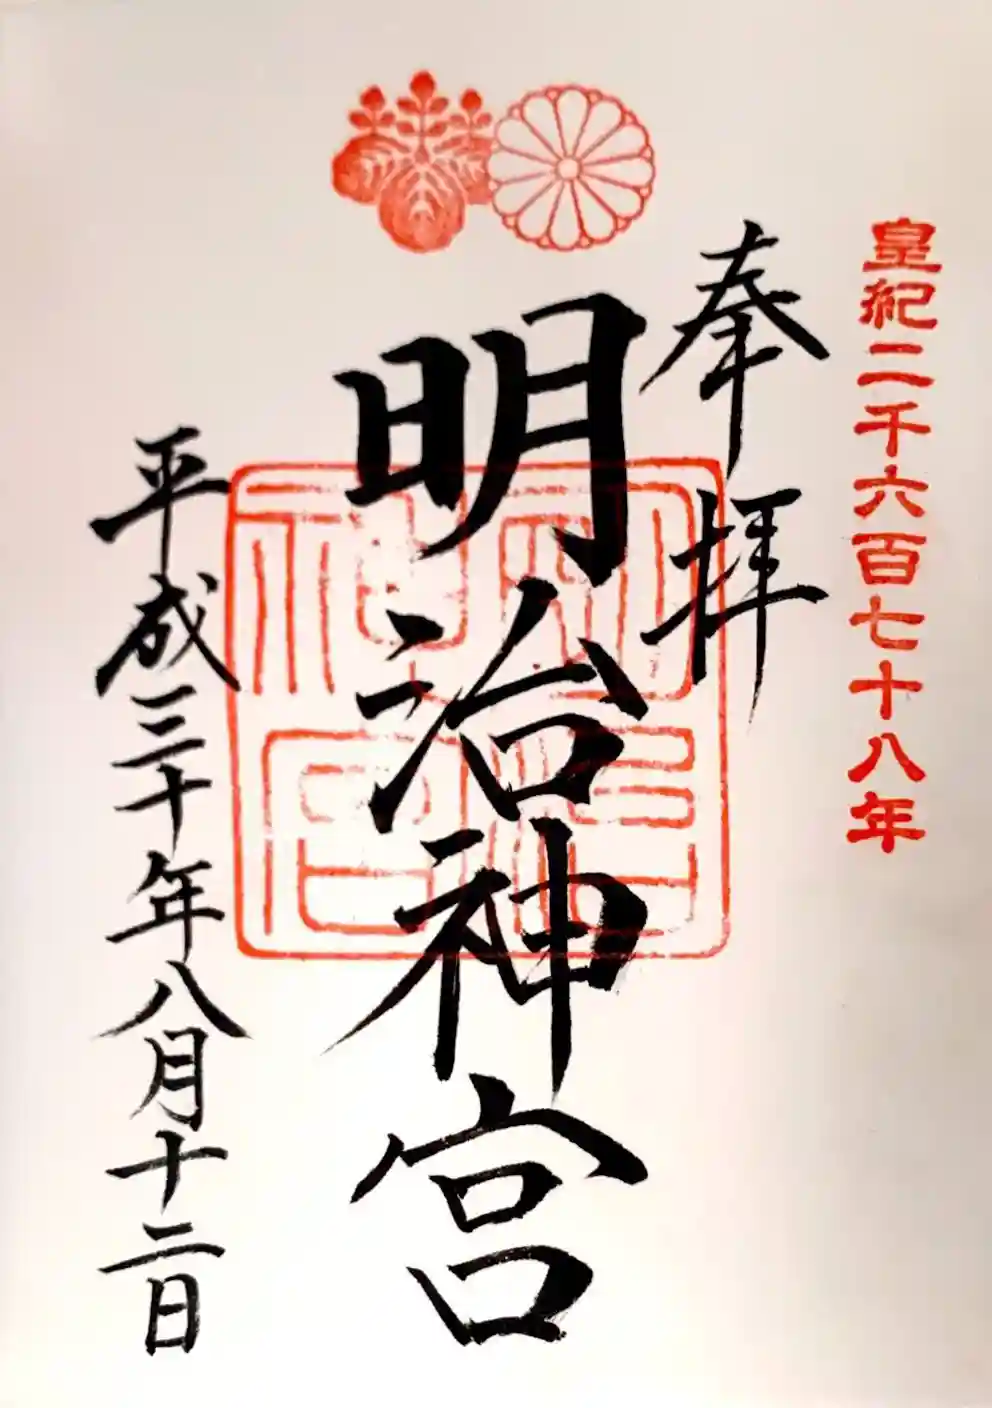 皇紀二千六百七十八年
奉拝
明治神宮
平成三十年八月十二日
明治神宮